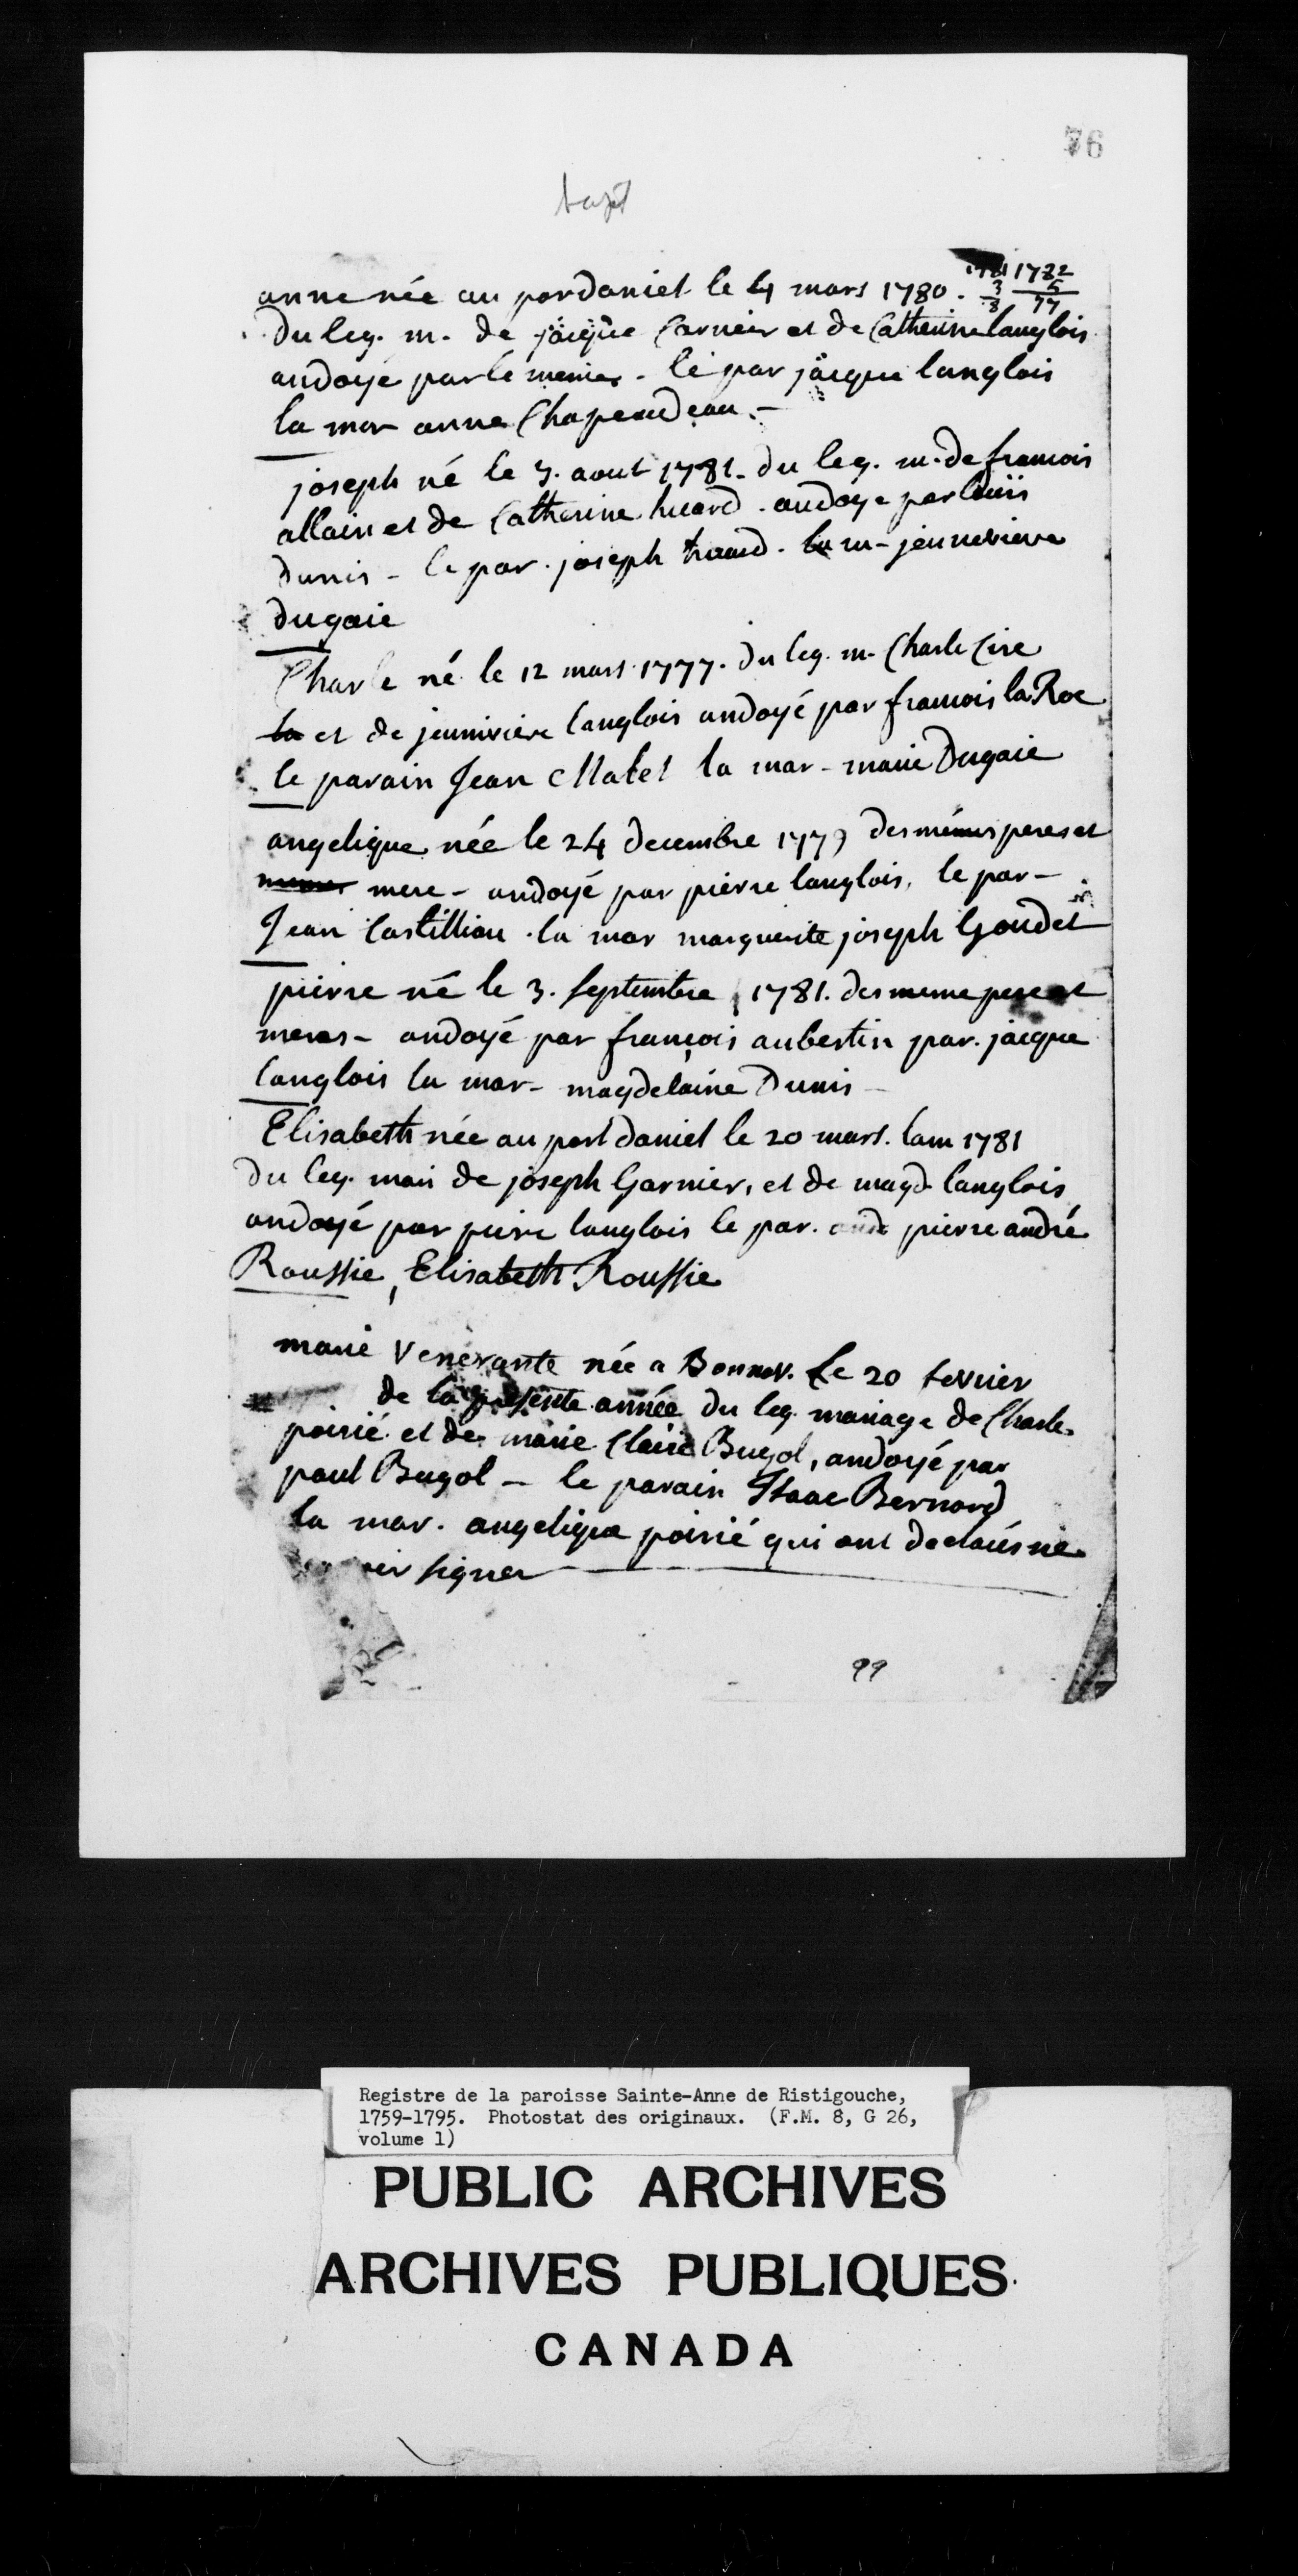 76
bapt
1781 1782
3 5
8 77
anne née au pordaniel le 4 mars 1780.
Du leg. m. de jacque Carnier et de Catherine langlois
andoyé par le meme - le par jacque langlois
la mar anne Chapeaudeau -
joseph né le 3. aout 1781. du leg. m. de francois
allain et de Catherine huard. andoye par louis
Dunis - le par. joseph huard. la m - jenneviere
dugaie
Charle né le 12 mars 1777. Du leg. m. Charle Cire
la et de jennivière langlois andoyé par francois la Roe
le parain Jean Malet la mar - marie Dugaie
angelique née le 24 decembre 1779 des mêmes peres et
mere - andoyé par pierre langlois, le par -
Jean Castilliou. la mar marguerite joseph Goudet
pierre né le 3. septembre 1781. des meme pere et
meres - andoyé par françois aubertin par. jacque
langlois la mar - magdelaine Dunis -
Elisabeth née au port daniel le 20 mars. lam 1781
du leg. mari de joseph Garnier, et de magd langlois
andoyé par peire langlois le par. pierre andré
Roussie, Elisabeth Roussie
marie Venerante née a Bonnav. Le 20 fevrier
de la presente année du leg. mariage de Charle
poirié et de marie Claire Bugol, andoyé par
paul Bugol - le parain Isaac Bernard
la mar. angelique poirié qui ont declarés ne
signer
99
Registre de la paroisse Sainte-Anne de Ristigouche,
1759-1795. Photostat des originaux. (F.M. 8, G 26,
volume 1)
PUBLIC ARCHIVES
ARCHIVES PUBLIQUES
CANADA